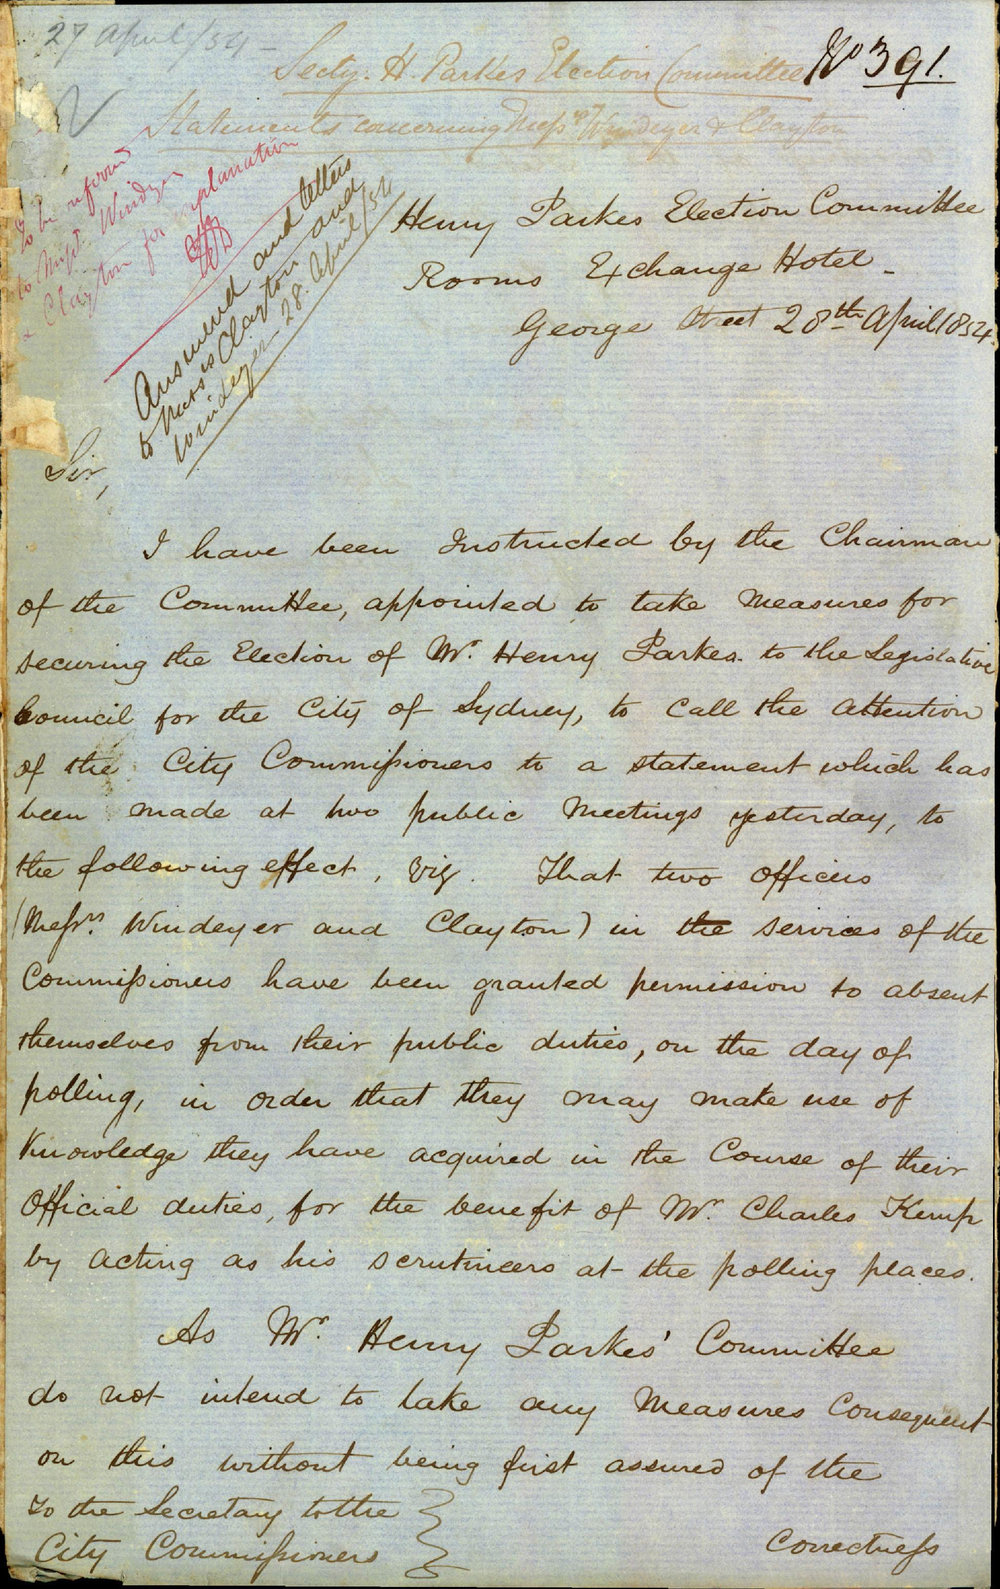 27 April/54
Secty. H. Parkes Election Committee
No 391.
Statements concerning Messrs Windeyer & Clayton
To be referred
to Messrs. Windeyer
& Clayton for explanation
Answered and letters
to Messrs Clayton and
Windeyer 28. April/54
Henry Parkes Election Committee
Rooms Exchange Hotel
George Street 28th April 1854.
Sir,
I have been Instructed by the Chairman
of the Committee, appointed to take Measures for
securing the Election of Mr. Henry Parkes. to the Legislative
Council for the City of Sydney, to Call the Attention
of the City Commissioners to a statement which has
been made at two public Meetings yesterday, to
the following effect, Viz. That two officers
(Messrs. Windeyer and Clayton) in the services of the
Commissioners have been granted permission to absent
themselves from their public duties, on the day of
polling, in order that they may make use of
Knowledge they have acquired in the Course of their
Official duties, for the benefit of Mr. Charles Kemp
by acting as his scrutineers at the polling places.
As Mr. Henry Parkes' Committee
do not intend to take any Measures Consequent
on this without being first assured of the
To the Secretary to the
City Commissioners
Correctness